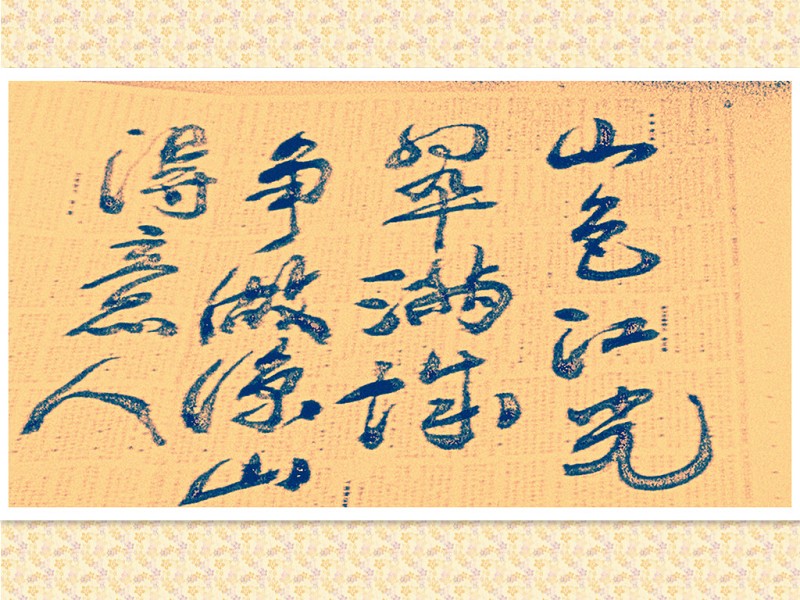 山色江光
翠满城
争做凉山
得意人